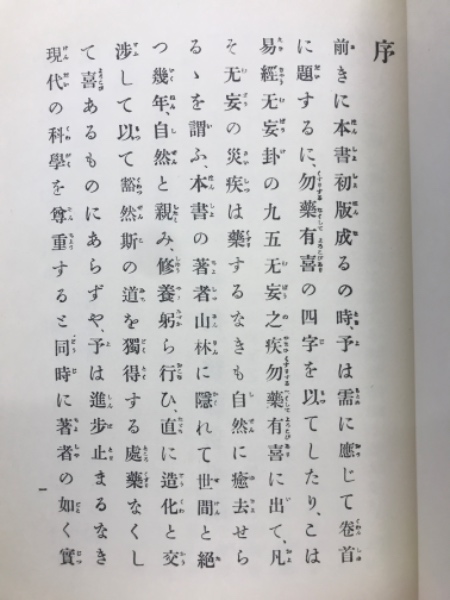 序
前きに本書初版成るの時、予は需に應じて卷首
に題するに、勿藥有喜の四字を以てしたり、こは
易經无妄卦の九五无妄之疾勿藥有喜に出て、凡
そ无妄の災疾は藥するなきも自然に癒去せら
るゝを謂ふ、本書の著者山林に隱れて世間と絶
つ幾年、自然と親み、修養躬ら行ひ、直に造化と交
渉して以て豁然斯の道を獨得する處藥なくし
て喜あるものにあらずや、予は進歩止まるなき
現代の科學を尊重すると同時に著者の如く實
一